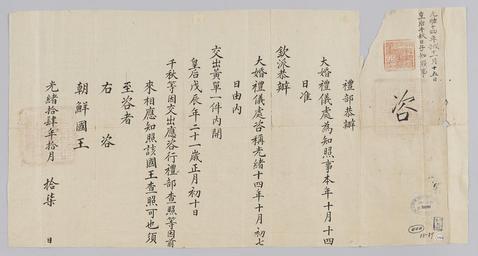 咨
禮部恭辦
大婚禮儀處爲知照事本年十月十四
日准
欽派恭辦
大婚禮儀處咨稱光緖十四年十月初七
日由內
交出黃單一件內開
皇后戊辰年二十一歲正月初十日
千秋等因交出應咨行禮部查照等因前
來相應知照該國王查照可也須
至咨者
右咨
朝鮮國王
光緖拾肆年拾月拾柒日